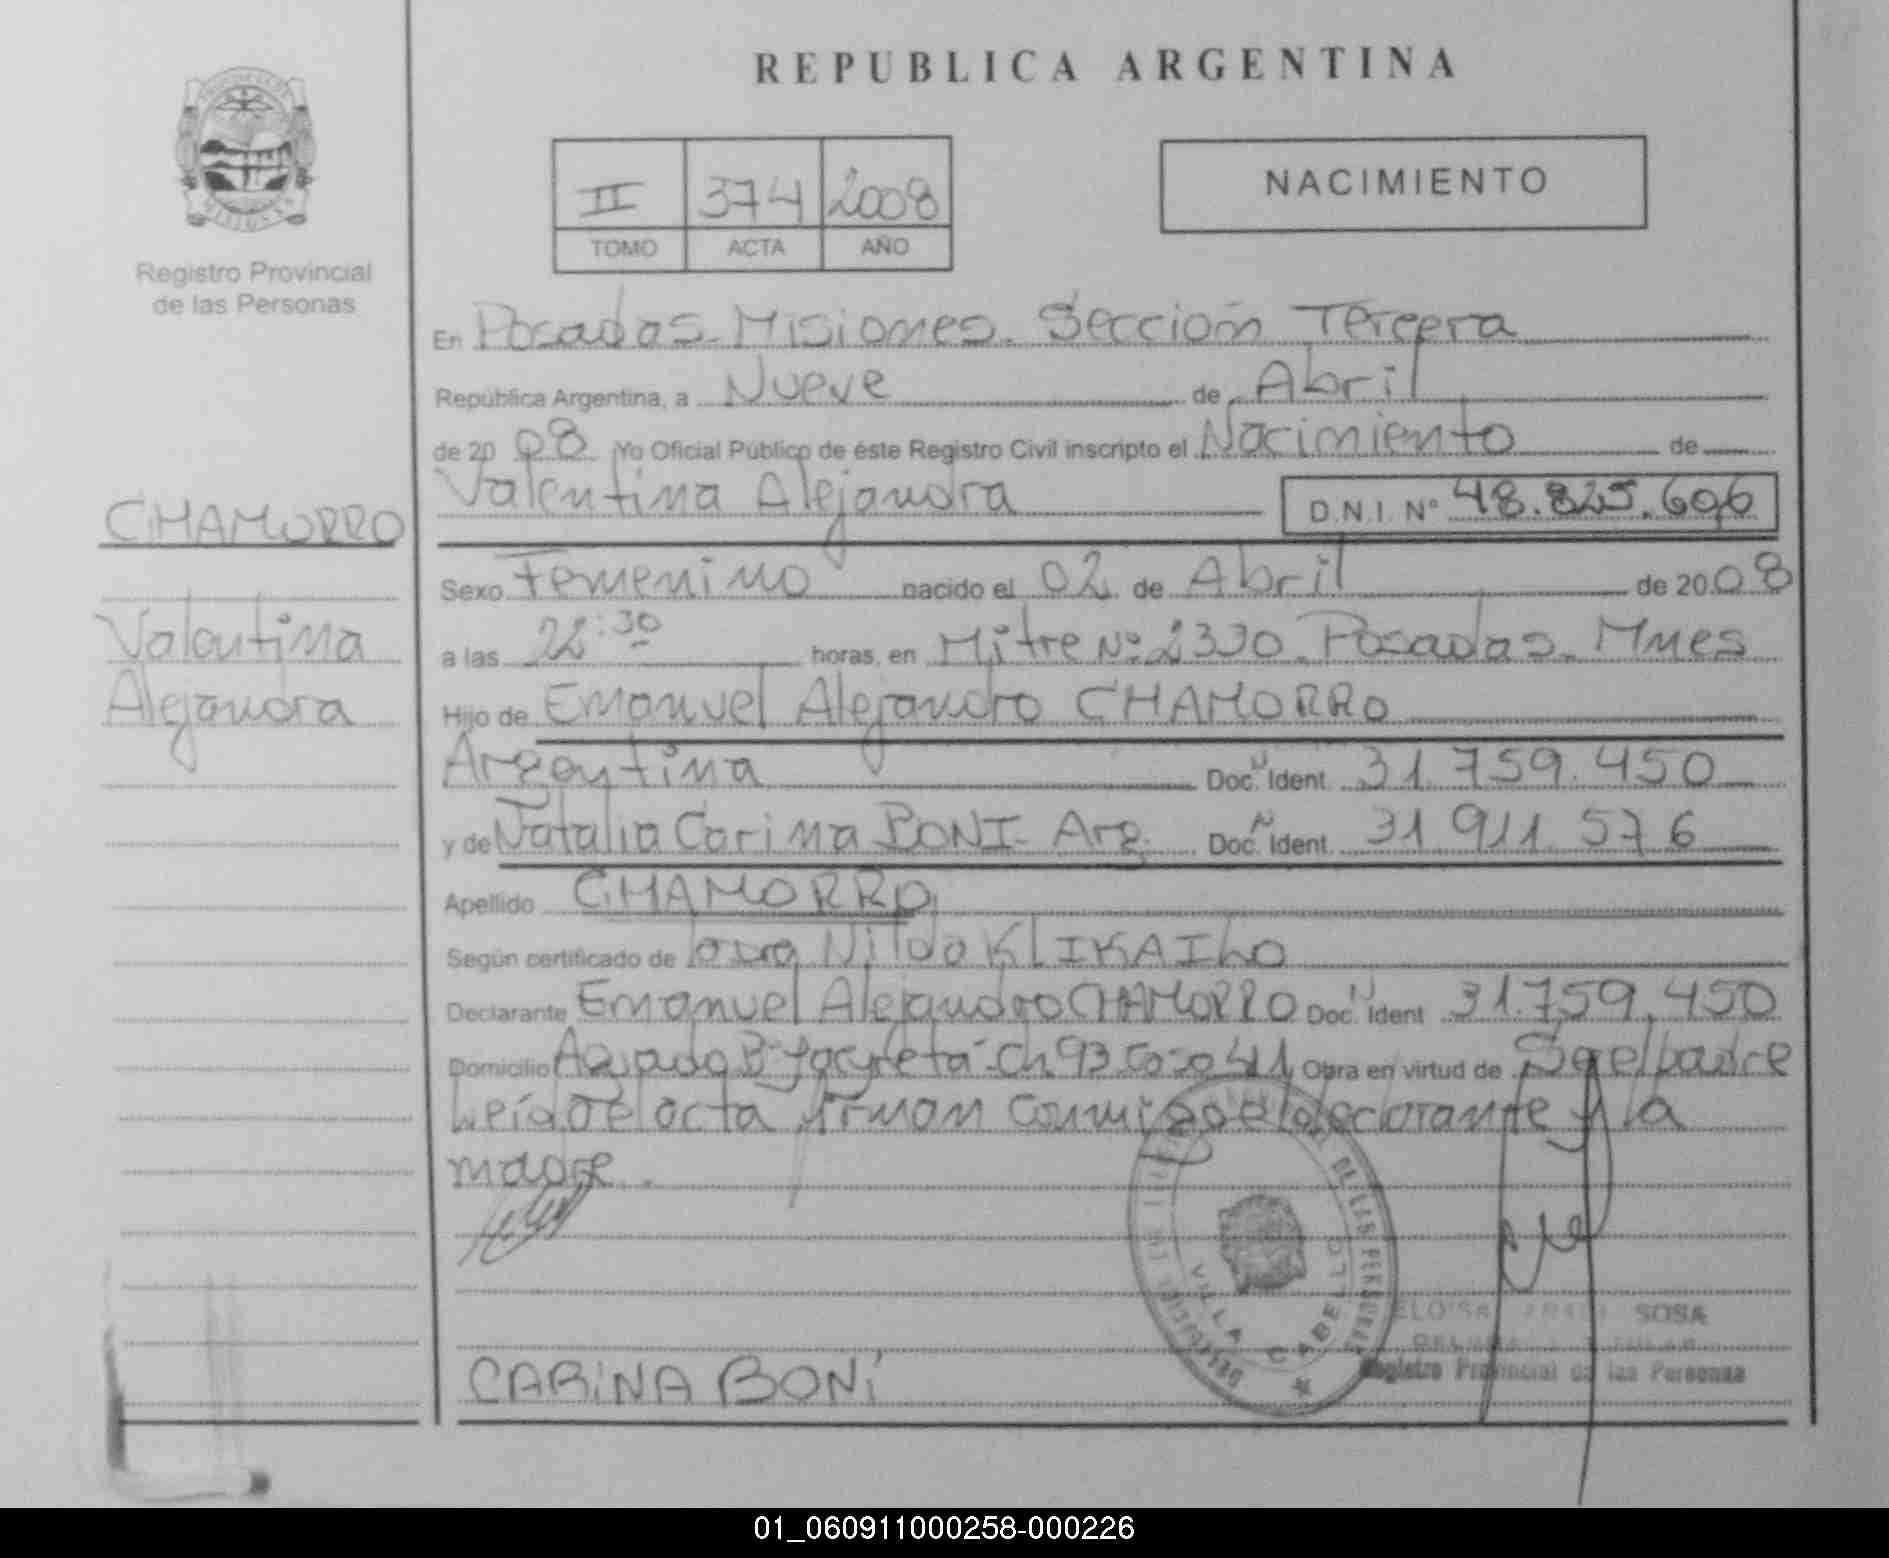 REPUBLICA ARGENTINA
II 374 2008
TOMO ACTA AÑO
NACIMIENTO
Registro Provincial
de las Personas
CHAMORRO
Valentina
Alejandra
En Posadas-Misiones. Sección Tercera
República Argentina, a Nueve de Abril
de 2008 Yo Oficial Público de éste Registro Civil inscripto el Nacimiento de
Valentina Alejandra D.N.I. Nº 48.825.696
Sexo Femenino nacido el 02 de Abril de 2008
a las 22:30 horas, en Mitre Nº 2330. Posadas. Mnes
Hijo de Emanuel Alejandro CHAMORRO
Argentina Doc. N Ident. 31.759.450
y de Natalia Carina BONI- Arg. Doc. N Ident. 31 911 576
Apellido CHAMORRO
Según certificado de Nilda KLIKAILO
Declarante Emanuel Alejandro CHAMORRO Doc. N Ident 31.759.450
Domicilio Aguado Bº Yacyreta-Ch. 93 Obra en virtud de Sgelpadre
Leída el acta firman conmigo el declarante y la
madre.
DE LAS PERSONAS
VILLA CABELLO
ELOISA SOSA
Registro Provincial de las Personas
CARINA BONI
01_060911000258-000226